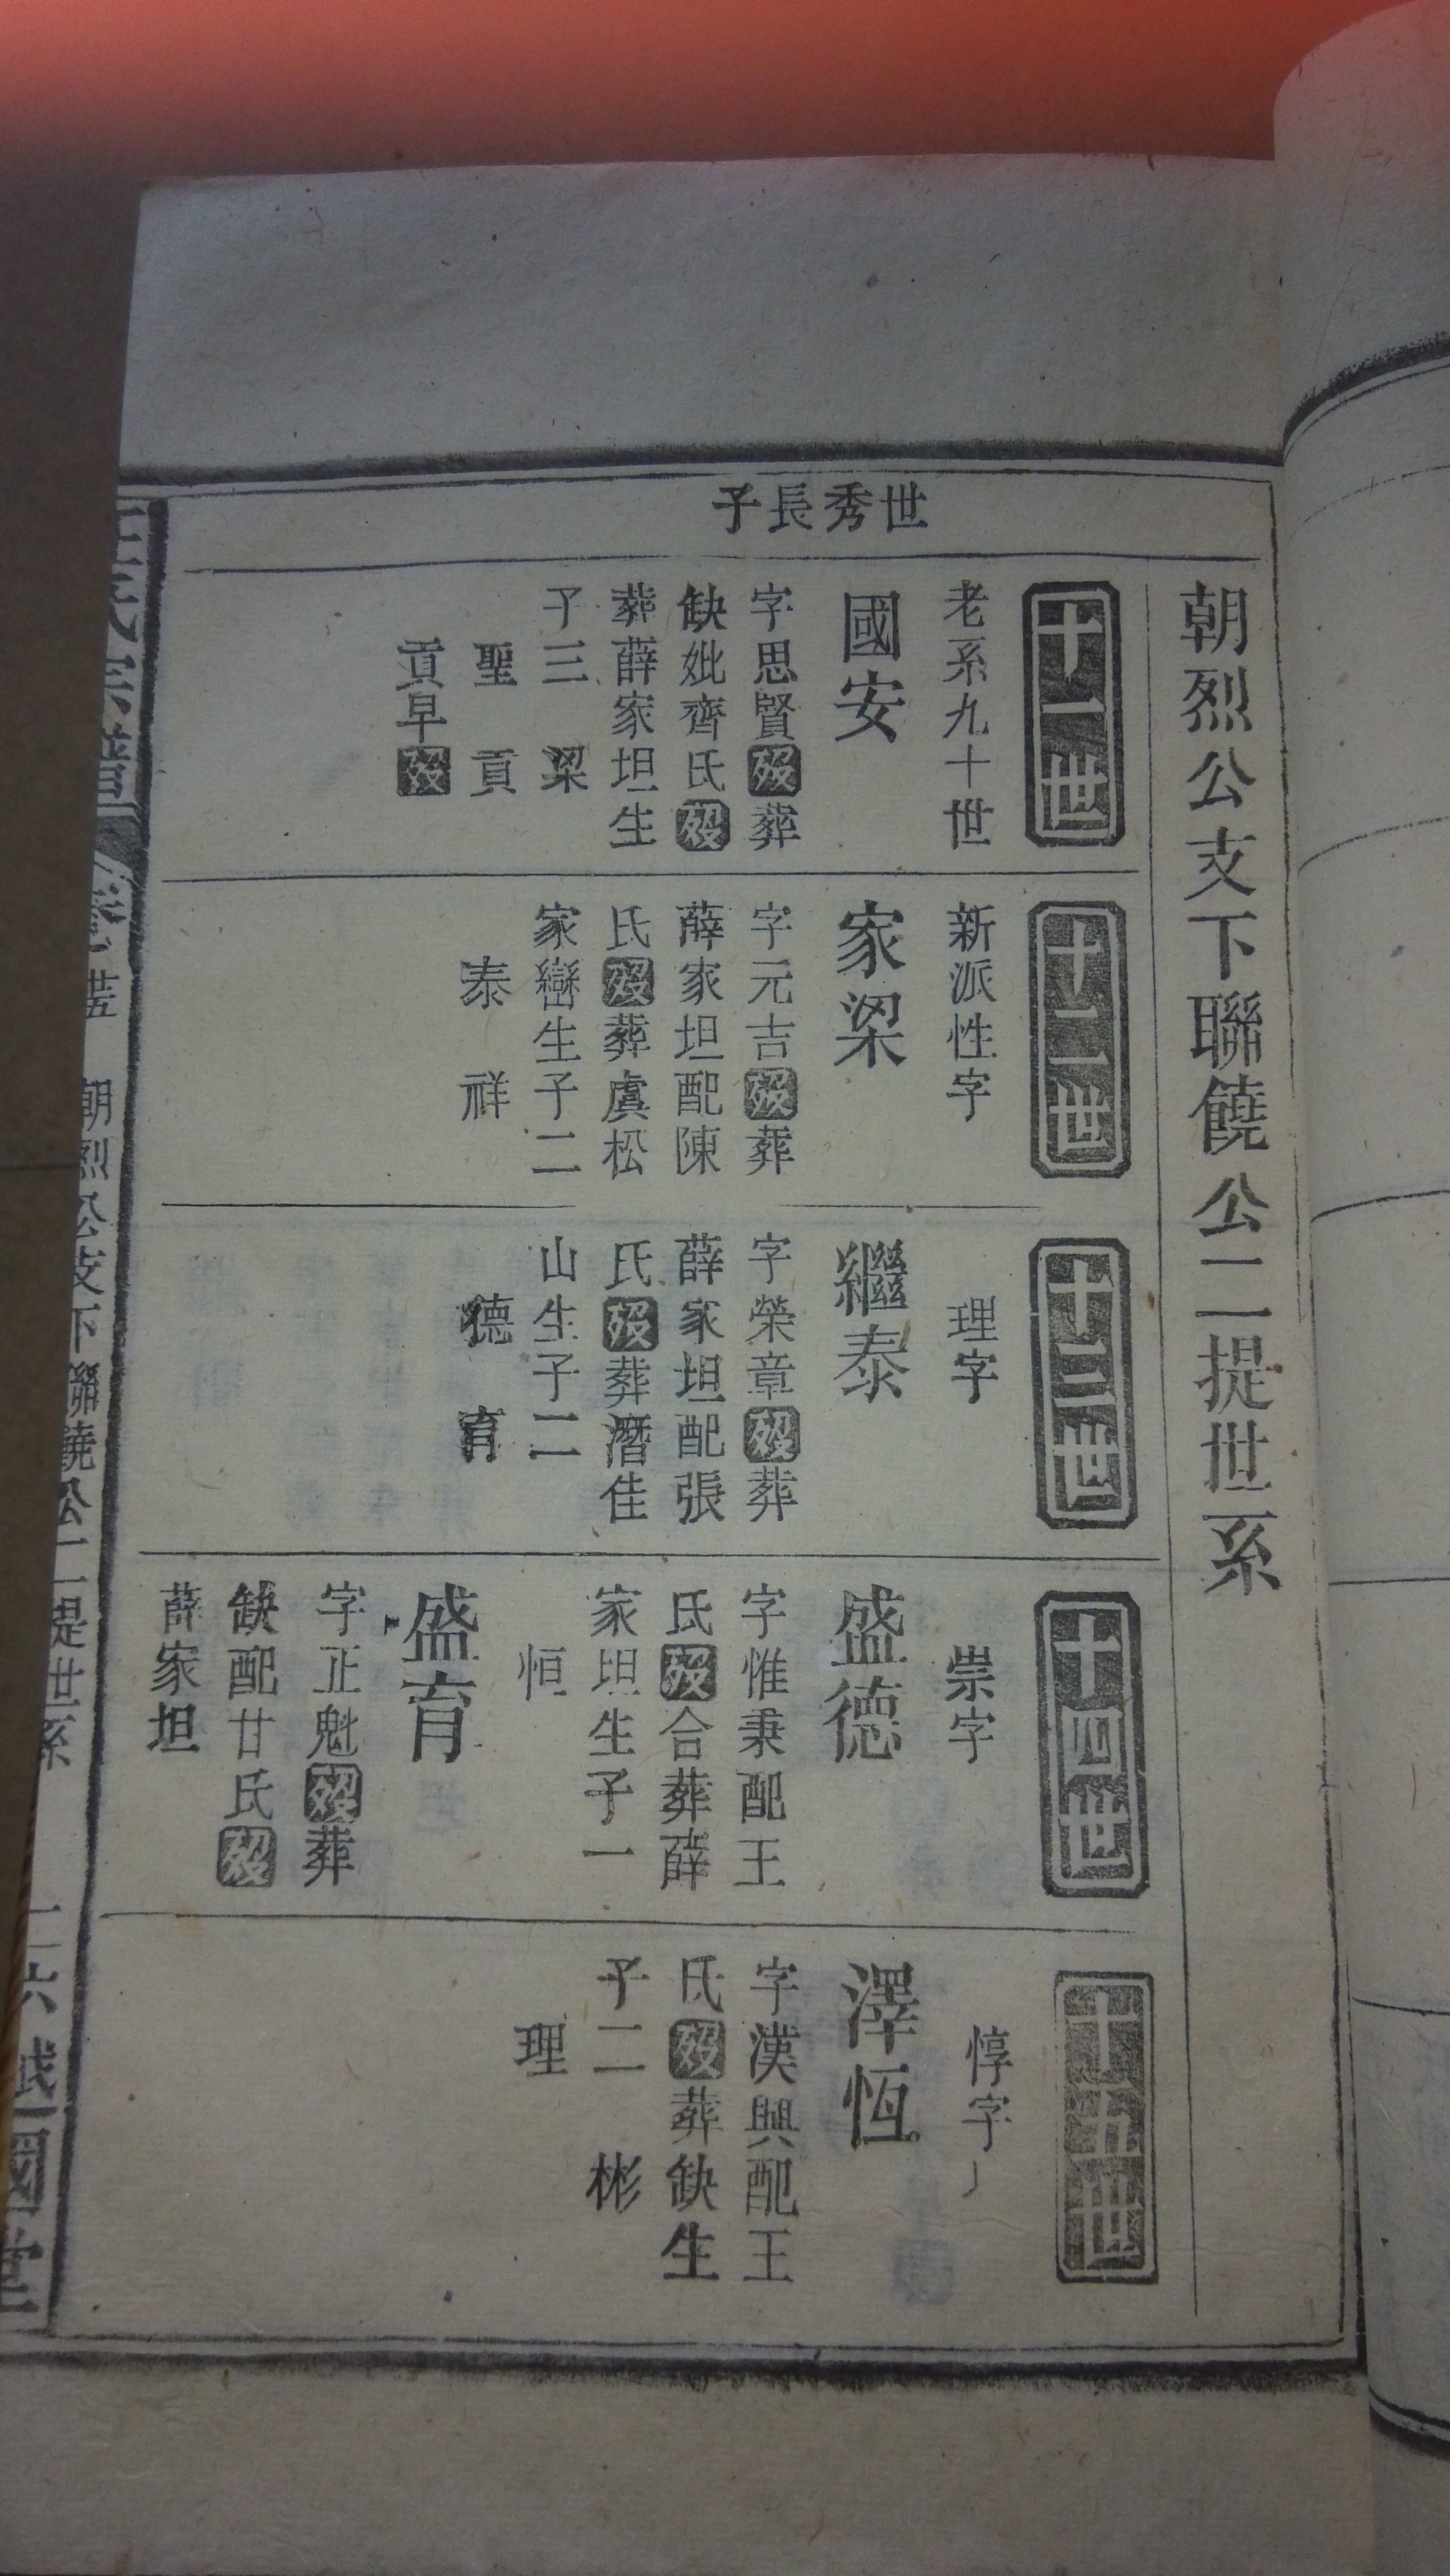 朝烈公支下聯饒公二提世系
世秀長子
十一世
老系九十世
國安
字思賢歿葬
缺妣齊氏歿
葬薛家坦生
子三 梁
聖 貢
貢早歿
十二世
新派性字
家梁
字元吉歿葬
薛家坦配陳
氏歿葬虞松
家巒生子二
泰 祥
十三世
理字
繼泰
字榮章歿葬
薛家坦配張
氏歿葬潛佳
山生子二
德 育
十四世
崇字
盛德
字惟秉配王
氏歿合葬薛
家坦生子一
恒
盛育
字正魁歿葬
缺配甘氏歿
薛家坦
十五世
惇字
澤恆
字漢興配王
氏歿葬缺生
子二 彬
理
氏宗譜 朝烈公支下聯饒公二提世系 二六 越國堂